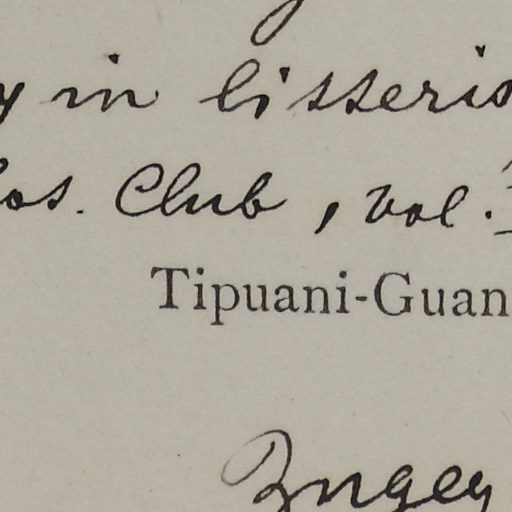 y in lisserio
los. Club, vol.
Tipuani-Guan
Bugey